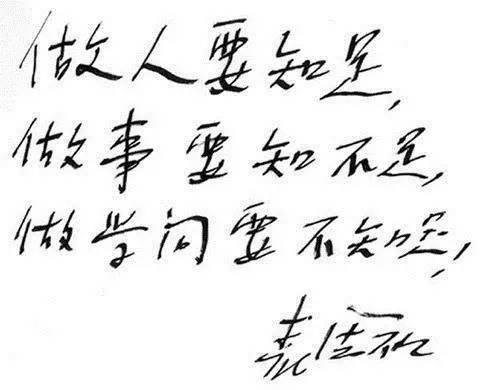 做人要知足,
做事要知不足,
做学问要不知足,
裘法祖